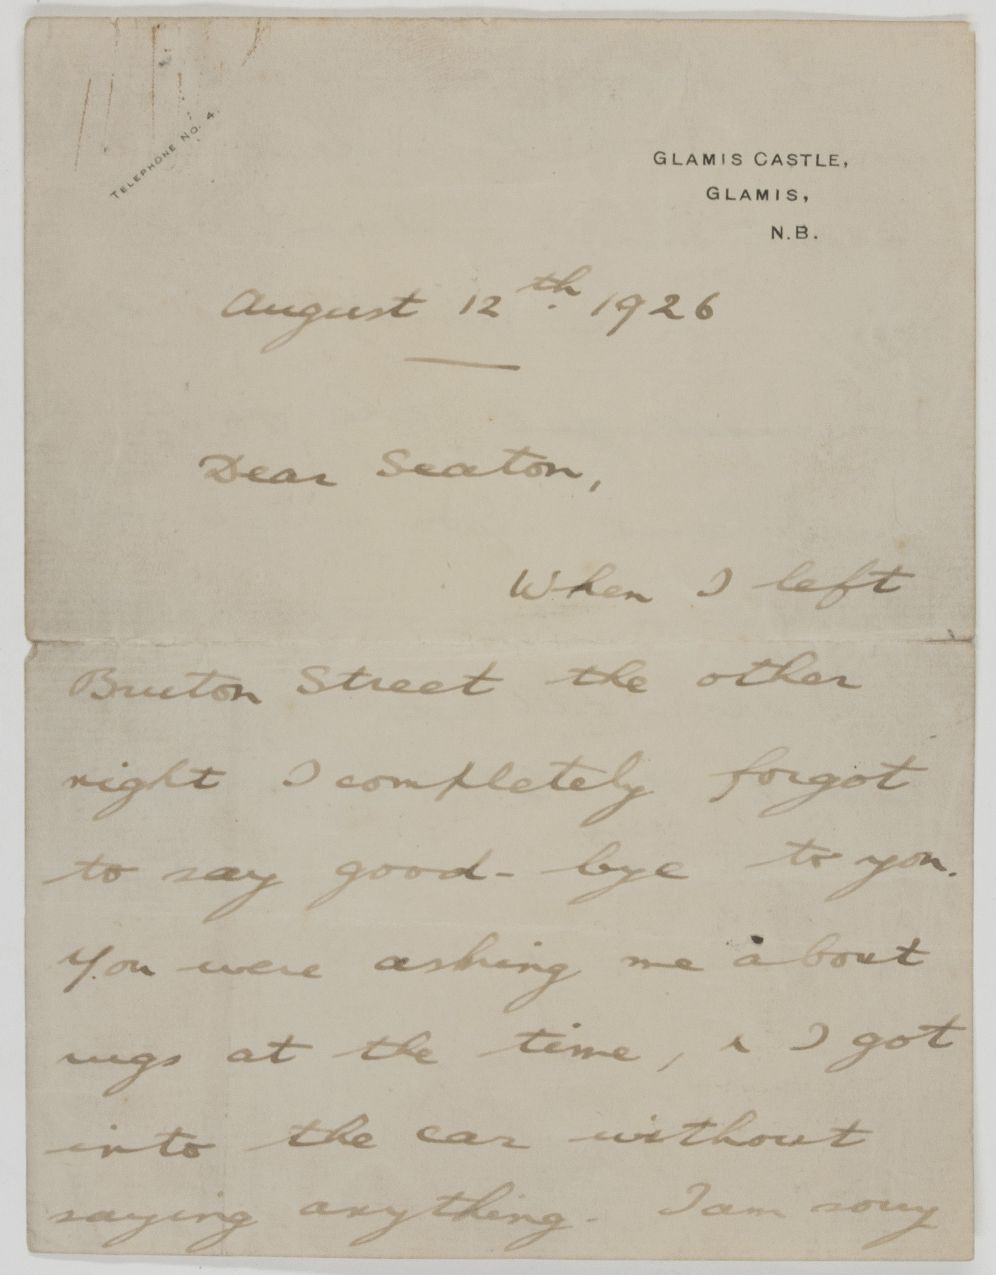 TELEPHONE NO. 4.
GLAMIS CASTLE,
GLAMIS,
N.B.
August 12th. 1926
Dear Seaton,
When I left
Bruton Street the other
night I completely forgot
to say good-bye to you.
You were asking me about
rugs at the time, & I got
into the car without
saying anything. I am sorry